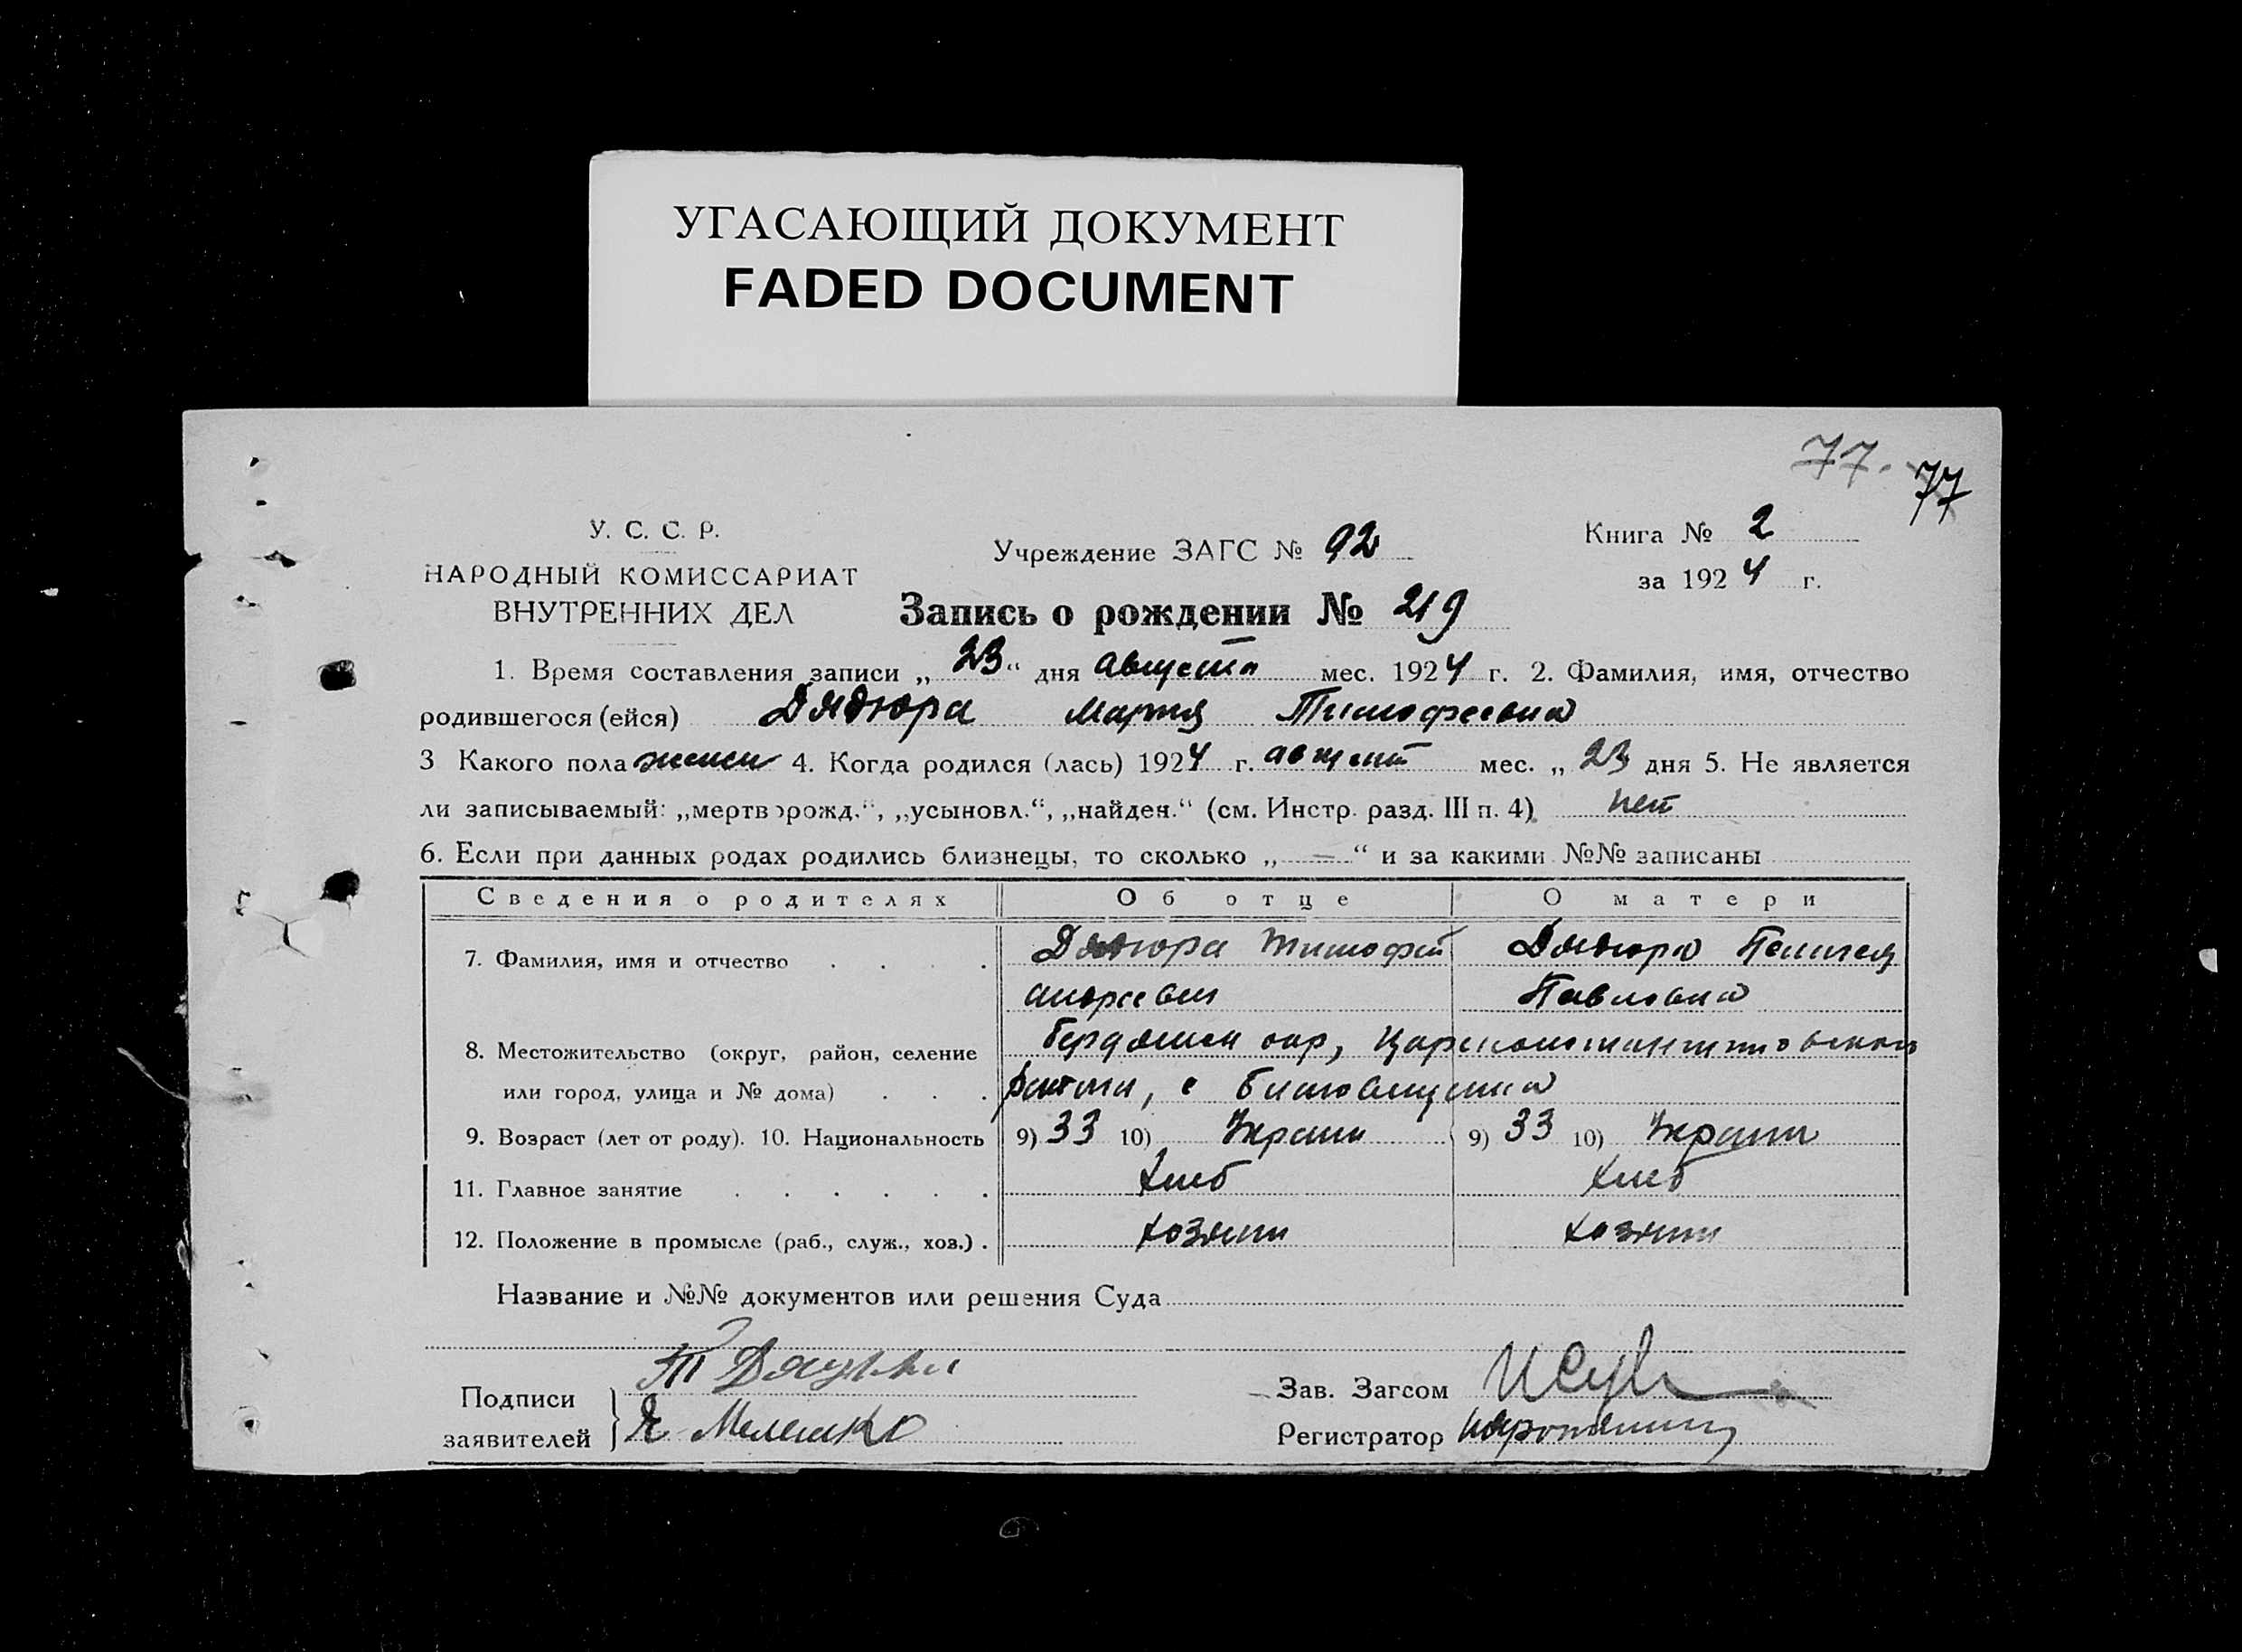 УГАСАЮЩИЙ ДОКУМЕНТ
FADED DOCUMENT
77. 77
У. С. С. Р.
НАРОДНЫЙ КОМИССАРИАТ
ВНУТРЕННИХ ДЕЛ
Учреждение ЗАГС № 92
Книга № 2
за 1924 г.
Запись о рождении № 219
1. Время составления записи „ 23 “ дня августа мес. 1924 г. 2. Фамилия, имя, отчество
родившегося (ейся) Дядюра Мария Тимофеевна
3 Какого пола женск 4. Когда родился (лась) 1924 г. август мес. „ 23 дня 5. Не является
ли записываемый: „мертворожд.“, „усыновл.“, „найден.“ (см. Инстр. разд. III п. 4) нет
6. Если при данных родах родились близнецы, то сколько „ — “ и за какими №№ записаны
Сведения о родителях Об отце О матери
7. Фамилия, имя и отчество . . . . Дядюра Тимофей Дядюра
Андреевич Павловна
8. Местожительство (округ, район, селение окр, Царсконстантиновского
или город, улица и № дома) . . . с
9. Возраст (лет от роду). 10. Национальность 9) 33 10) Украин 9) 33 10) Украин
11. Главное занятие . . . . . . хлеб хлеб
12. Положение в промысле (раб., служ., хоз.) . хозяин хозяин
Название и №№ документов или решения Суда
Подписи
заявителей
Т
Зав. Загсом
Регистратор